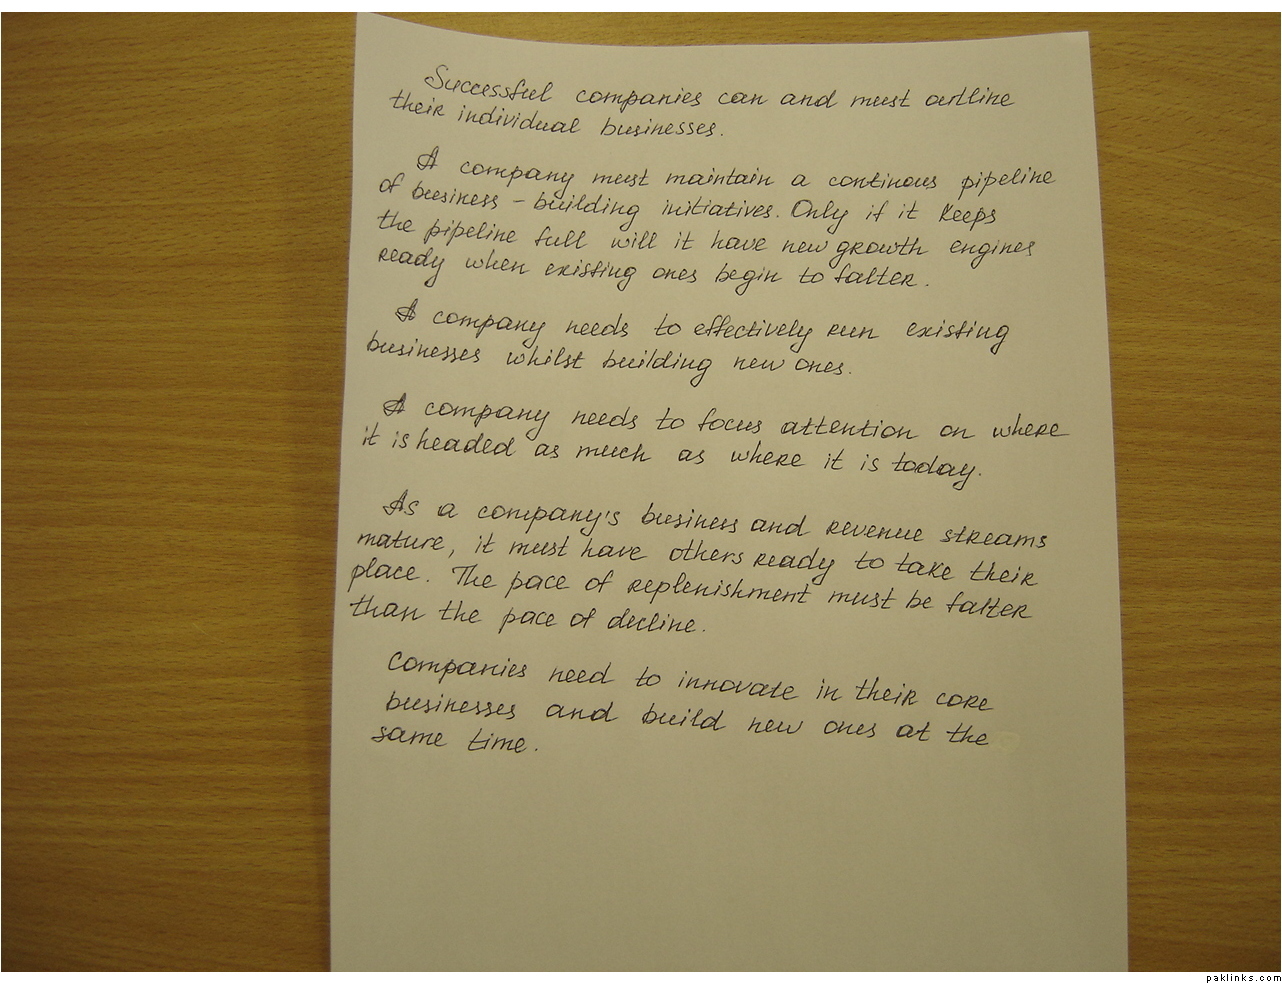 Successful companies can and must outline
their individual businesses.
A company must maintain a continous pipeline
of business - building initiatives. Only if it keeps
the pipeline full will it have new growth engines
ready when existing ones begin to falter.
A company needs to effectively run existing
businesses whilst building new ones.
A company needs to focus attention on where
it is headed as much as where it is today.
As a company's business and revenue streams
mature, it must have others ready to take their
place. The pace of replenishment must be falter
than the pace of decline.
Companies need to innovate in their core
businesses and build new ones at the
same time.
paklinks.com